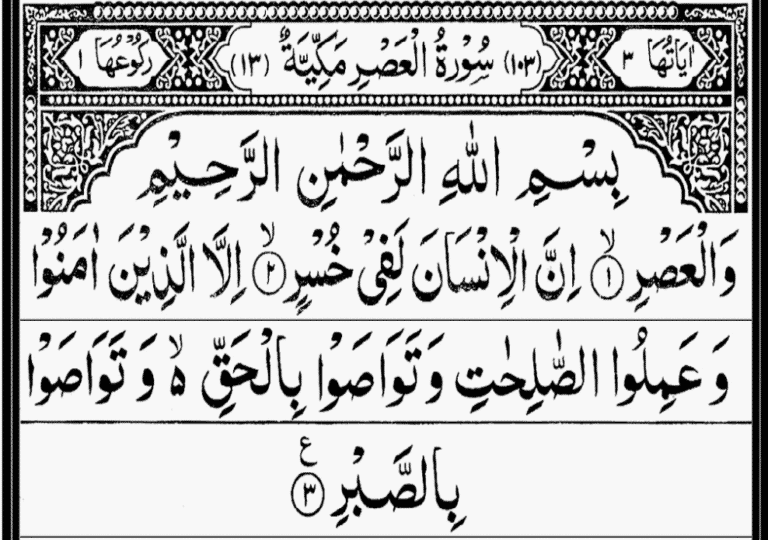 اٰيَاتُهَا ٣ (١٠٣) سُوْرَةُ الْعَصْرِ مَكِّيَّةٌ (١٣) رُكُوْعُهَا ١
بِسْمِ اللهِ الرَّحْمٰنِ الرَّحِيْمِ
وَالْعَصْرِ ۙ﴿١﴾ اِنَّ الْاِنْسَانَ لَفِيْ خُسْرٍ ۙ﴿٢﴾ اِلَّا الَّذِيْنَ اٰمَنُوْا
وَ عَمِلُوا الصّٰلِحٰتِ وَتَوَاصَوْا بِالْحَقِّ ۙ۵ وَ تَوَاصَوْا
بِالصَّبْرِ ﴿٣﴾ ع